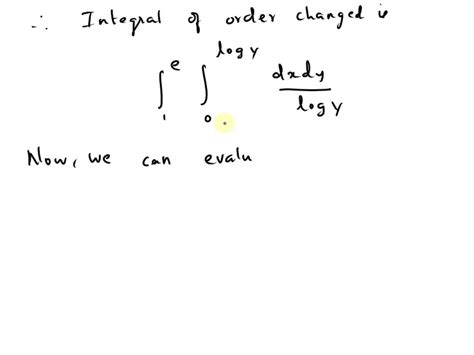 ∴ Integral of order changed is
∫₁ᵉ ∫₀^{log y} dxdy / log y
Now, we can evalu